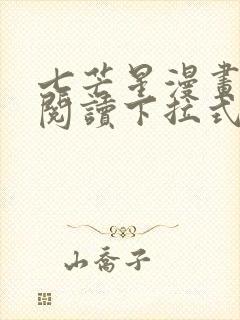 七芒星漫畫
閱讀下拉式
山喬子